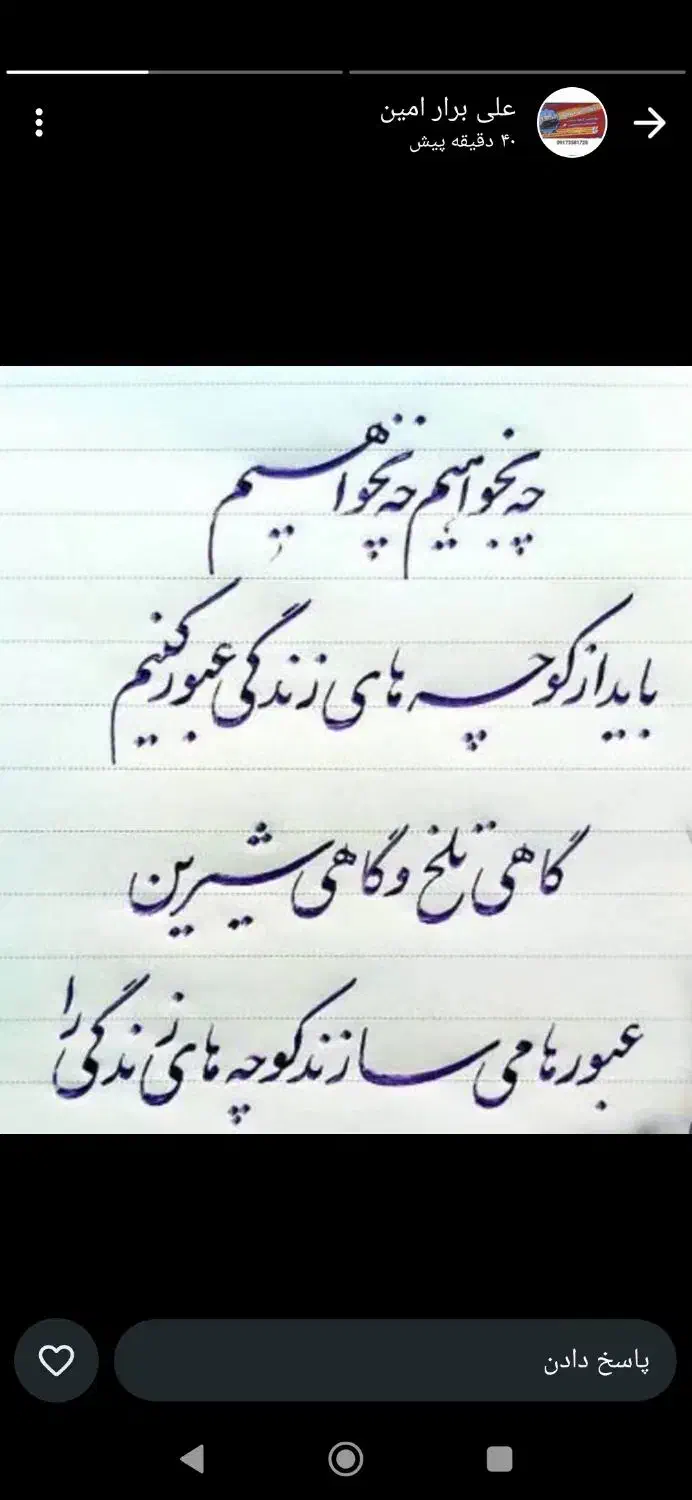 علی برار امین
۴۰ دقیقه پیش
09173581728
چه بخواهیم چه نخواهیم
باید از کوچه های زندگی عبور کنیم
گاهی تلخ و گاهی شیرین
عبورها می سازند کوچه های زندگی را
پاسخ دادن